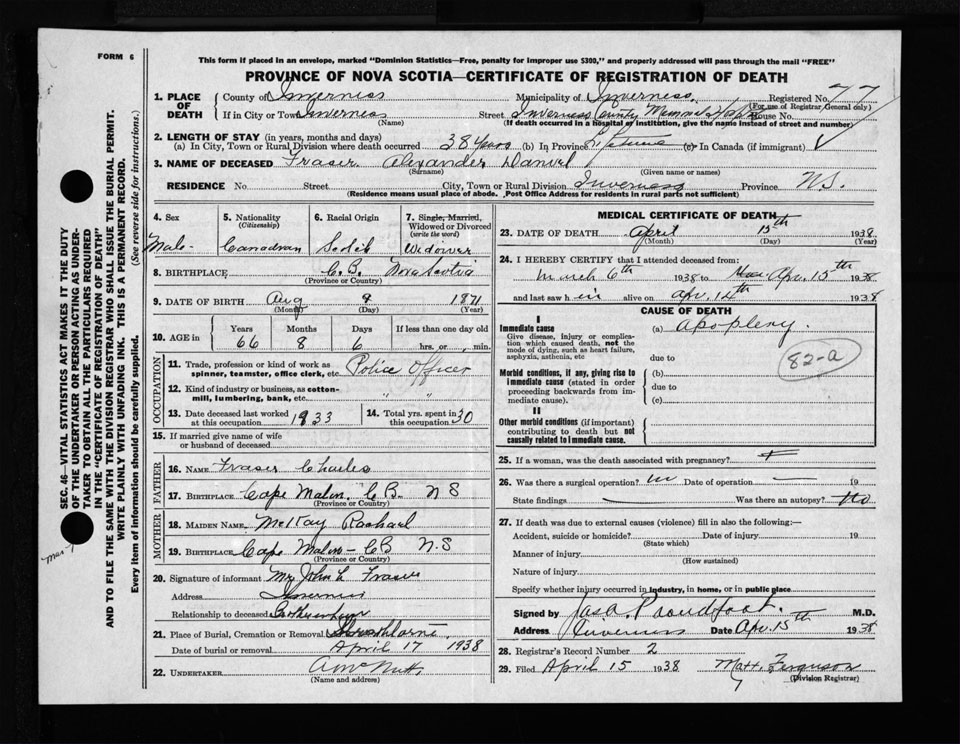 FORM 6
This form if placed in an envelope, marked "Dominion Statistics—Free, penalty for improper use $300," and properly addressed will pass through the mail "FREE"
PROVINCE OF NOVA SCOTIA—CERTIFICATE OF REGISTRATION OF DEATH
1. PLACE OF DEATH
County of Inverness Municipality of Inverness Registered No. 77
(For use of Registrar General only)
If in City or Town Inverness Street Inverness County Memorial House No.
(Name) (If death occurred in a hospital or institution, give the name instead of street and number)
2. LENGTH OF STAY (in years, months and days)
(a) In City, Town or Rural Division where death occurred 38 years (b) In Province Lifetime (c) In Canada (if immigrant)
3. NAME OF DECEASED Fraser Alexander Daniel
(Surname) (Given name or names)
RESIDENCE No. Street City, Town or Rural Division Inverness Province N.S.
(Residence means usual place of abode. Post Office Address for residents in rural parts not sufficient)
4. Sex
Male
5. Nationality
(Citizenship)
Canadian
6. Racial Origin
Scotch
7. Single, Married, Widowed or Divorced
(write the word)
Widower
8. BIRTHPLACE C.B. Nova Scotia
(Province or Country)
9. DATE OF BIRTH Aug 9 1871
(Month) (Day) (Year)
10. AGE in
Years Months Days If less than one day old
66 8 6 hrs. or min.
OCCUPATION
11. Trade, profession or kind of work as spinner, teamster, office clerk, etc. Police Officer
12. Kind of industry or business, as cotton-mill, lumbering, bank, etc. " "
13. Date deceased last worked at this occupation 1933
14. Total yrs. spent in this occupation 30
15. If married give name of wife or husband of deceased
FATHER
16. NAME Fraser Charles
17. BIRTHPLACE Cape Mabou C.B. N S
(Province or Country)
MOTHER
18. MAIDEN NAME McKay Rachael
19. BIRTHPLACE Cape Mabou — CB N.S
(Province or Country)
20. Signature of informant Mr John L Fraser
Address Inverness
Relationship to deceased
21. Place of Burial, Cremation or Removal Strathlorne
Date of burial or removal April 17 1938
22. UNDERTAKER
(Name and address)
MEDICAL CERTIFICATE OF DEATH
23. DATE OF DEATH April 15th 1938
(Month) (Day) (Year)
24. I HEREBY CERTIFY that I attended deceased from:
March 6th 1938 to Apr. 15th 1938
and last saw h im alive on Apr. 14th 1938
CAUSE OF DEATH
I
Immediate cause
Give disease, injury or complication which caused death, not the mode of dying, such as heart failure, asphyxia, asthenia, etc
(a) Apoplexy.
82-a
due to
Morbid conditions, if any, giving rise to immediate cause (stated in order proceeding backwards from immediate cause).
(b)
due to
(c)
II
Other morbid conditions (if important) contributing to death but not causally related to immediate cause.
25. If a woman, was the death associated with pregnancy?
26. Was there a surgical operation? no Date of operation — 19
State findings — Was there an autopsy? no
27. If death was due to external causes (violence) fill in also the following:—
Accident, suicide or homicide? Date of injury 19
(State which)
Manner of injury
(How sustained)
Nature of injury
Specify whether injury occurred in industry, in home, or in public place
Signed by Jas A Proudfoot. M.D.
Address Inverness Date Apr. 15th 1938
28. Registrar's Record Number 2
29. Filed April 15 1938 Matt. Ferguson
(Division Registrar)
SEC. 46—VITAL STATISTICS ACT MAKES IT THE DUTY
OF THE UNDERTAKER OR PERSON ACTING AS UNDER-
TAKER TO OBTAIN ALL THE PARTICULARS REQUIRED
IN THE "CERTIFICATE OF REGISTRATION OF DEATH"
AND TO FILE THE SAME WITH THE DIVISION REGISTRAR WHO SHALL ISSUE THE BURIAL PERMIT.
WRITE PLAINLY WITH UNFADING INK. THIS IS A PERMANENT RECORD.
Every item of information should be carefully supplied. (See reverse side for instructions.)